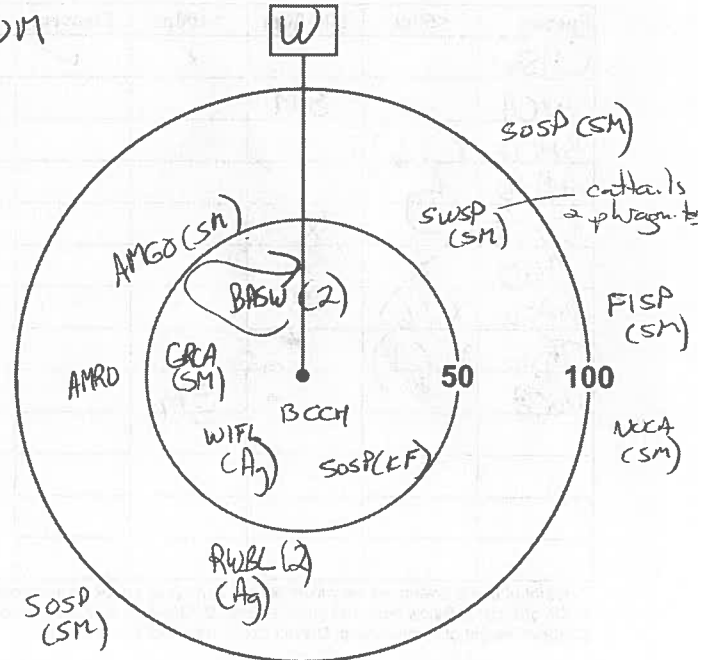 OM
W
SOSP (SM)
SWSP
(SM)
cattails
AMGO (SM)
BASW (2)
FISP
(SM)
AMRO
GRCA
(SM)
50
100
BCCH
NOCA
(SM)
WIFL
(Ag)
SOSP (KF)
RWBL (2)
(Ag)
SOSP
(SM)